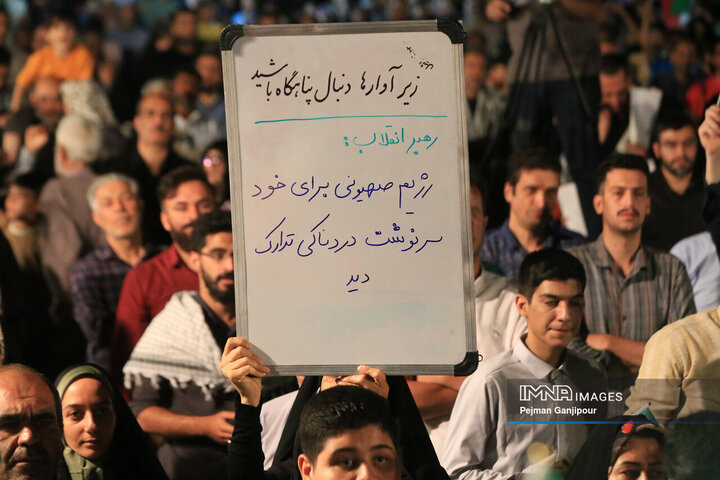 زیر آوارها دنبال پناهگاه باشید
رهبر انقلاب:
رژیم صهیونی برای خود
سرنوشت دردناکی تدارک
دید
IMNA IMAGES
Pejman Ganjipour